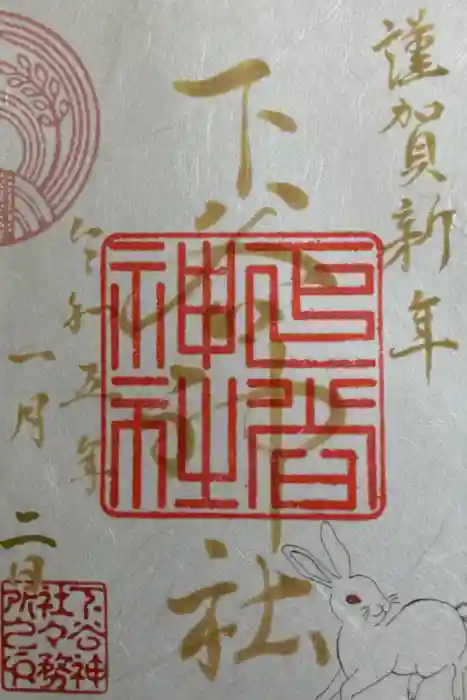 謹賀新年
下谷神社
令和五年
一月
二日
下谷神
社々務
所之印